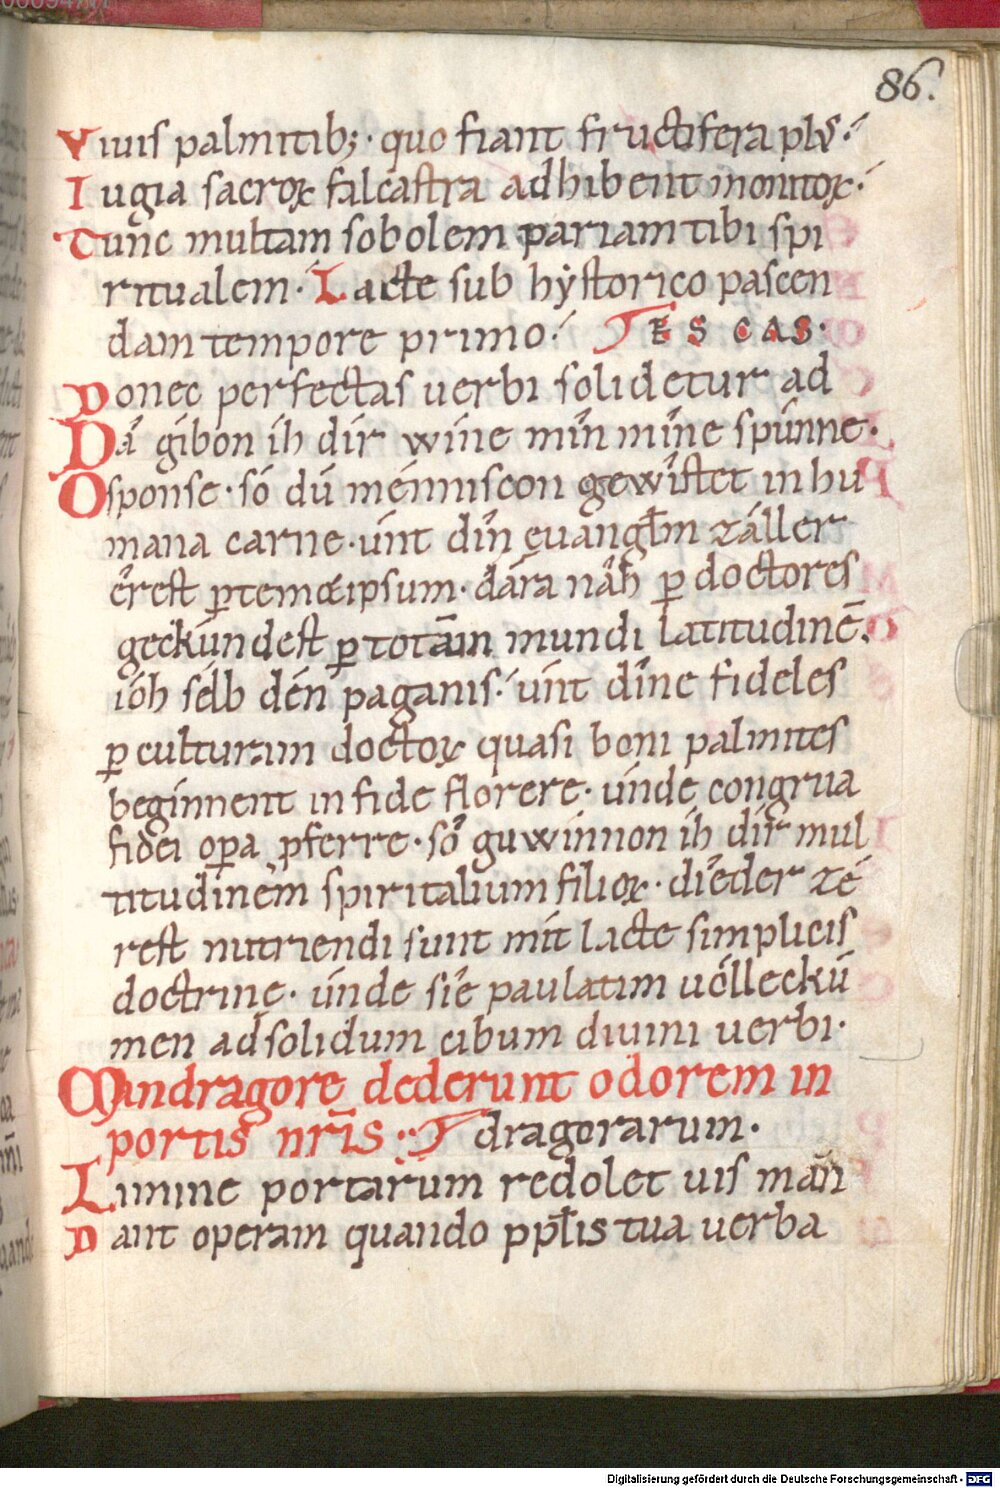 86.
Viuis palmitib; · quo fiant fructifera pľs·
Iugia sacroꝝ falcastra adhibent monitoꝝ·
Tunc multam sobolem pariam tibi spi
ritualem · Lacte sub hystorico pascen
dam tempore primo· ESCAS·
Donec perfectas uerbi solidetur ad
Dâ gibon ih dir wine mîn mîne spúnne·
O sponse · só dû ménniscon gewístet in hu
mana carne · únt dîn euangłm zâller
êrest ꝑ temetipsum · dára nâh ꝑ doctores
geckúndest ꝑ totam mundi latitudinē.
ióh sélb dén paganis · únt dîne fideles
ꝑ culturam doctoꝝ quasi boni palmites
begínnent in fide florere · únde congrua
fidei oꝑa ꝓferre · sô guwínnon ih dír mul
titudinem spiritalium filioꝝ · dîeder zé
rest nutriendi sunt mít lacte simplicis
doctrine · únde sîe paulatim uólleckú
men ad solidum cibum diuini uerbi·
Mandragore dederunt odorem in
portis nr̄is · dragorarum·
Limine portarum redolet uis man̄
Dant operam quando ppłis tua uerba
Digitalisierung gefördert durch die Deutsche Forschungsgemeinschaft - DFG